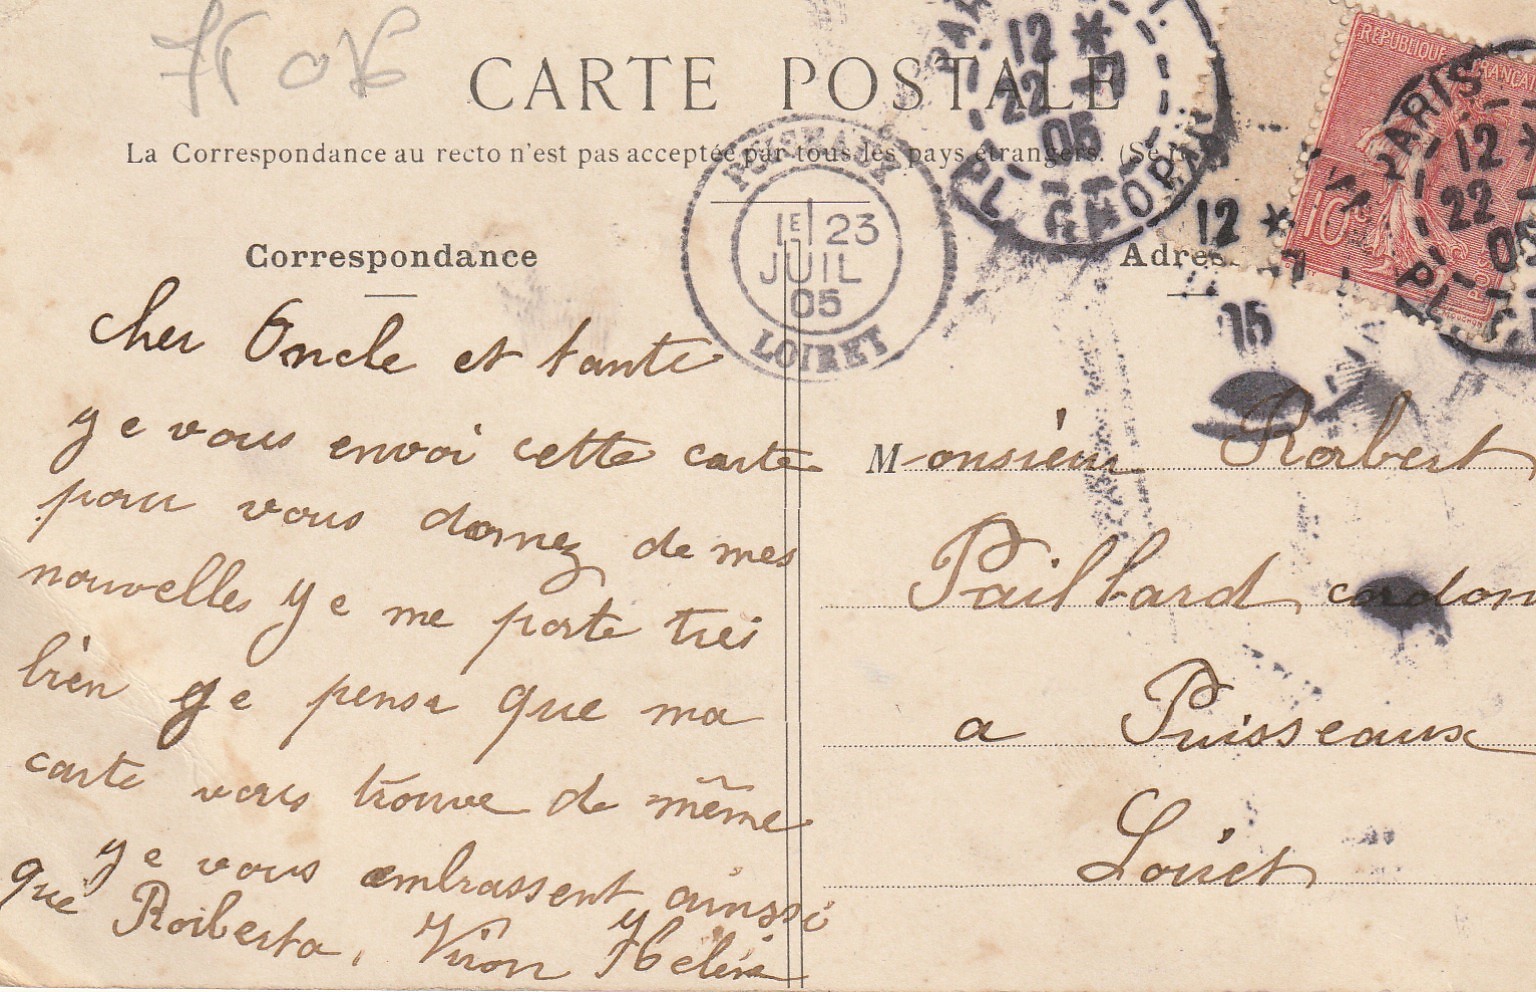 CARTE POSTALE
La Correspondance au recto n'est pas acceptée par tous les pays étrangers.
PUISEAUX
1E 23
JUIL
05
LOIRET
PARIS
12 *
22 -7
05
PL. CHOPIN
RÉPUBLIQUE FRANÇA
10
PARIS
12 *
22 -
05
PL.
12 *
Correspondance
Cher Oncle et tante
ye vous envoi cette carte
pour vous dornez de mes
nouvelles ye me porte tres
bien ye pense que ma
carte vous trouve de même
ye vous embrassent ainssi
que Roiberta, Viron Helène
Adres
Monsieur Robert
Paillard cordon
a Puisseaux
Loiret